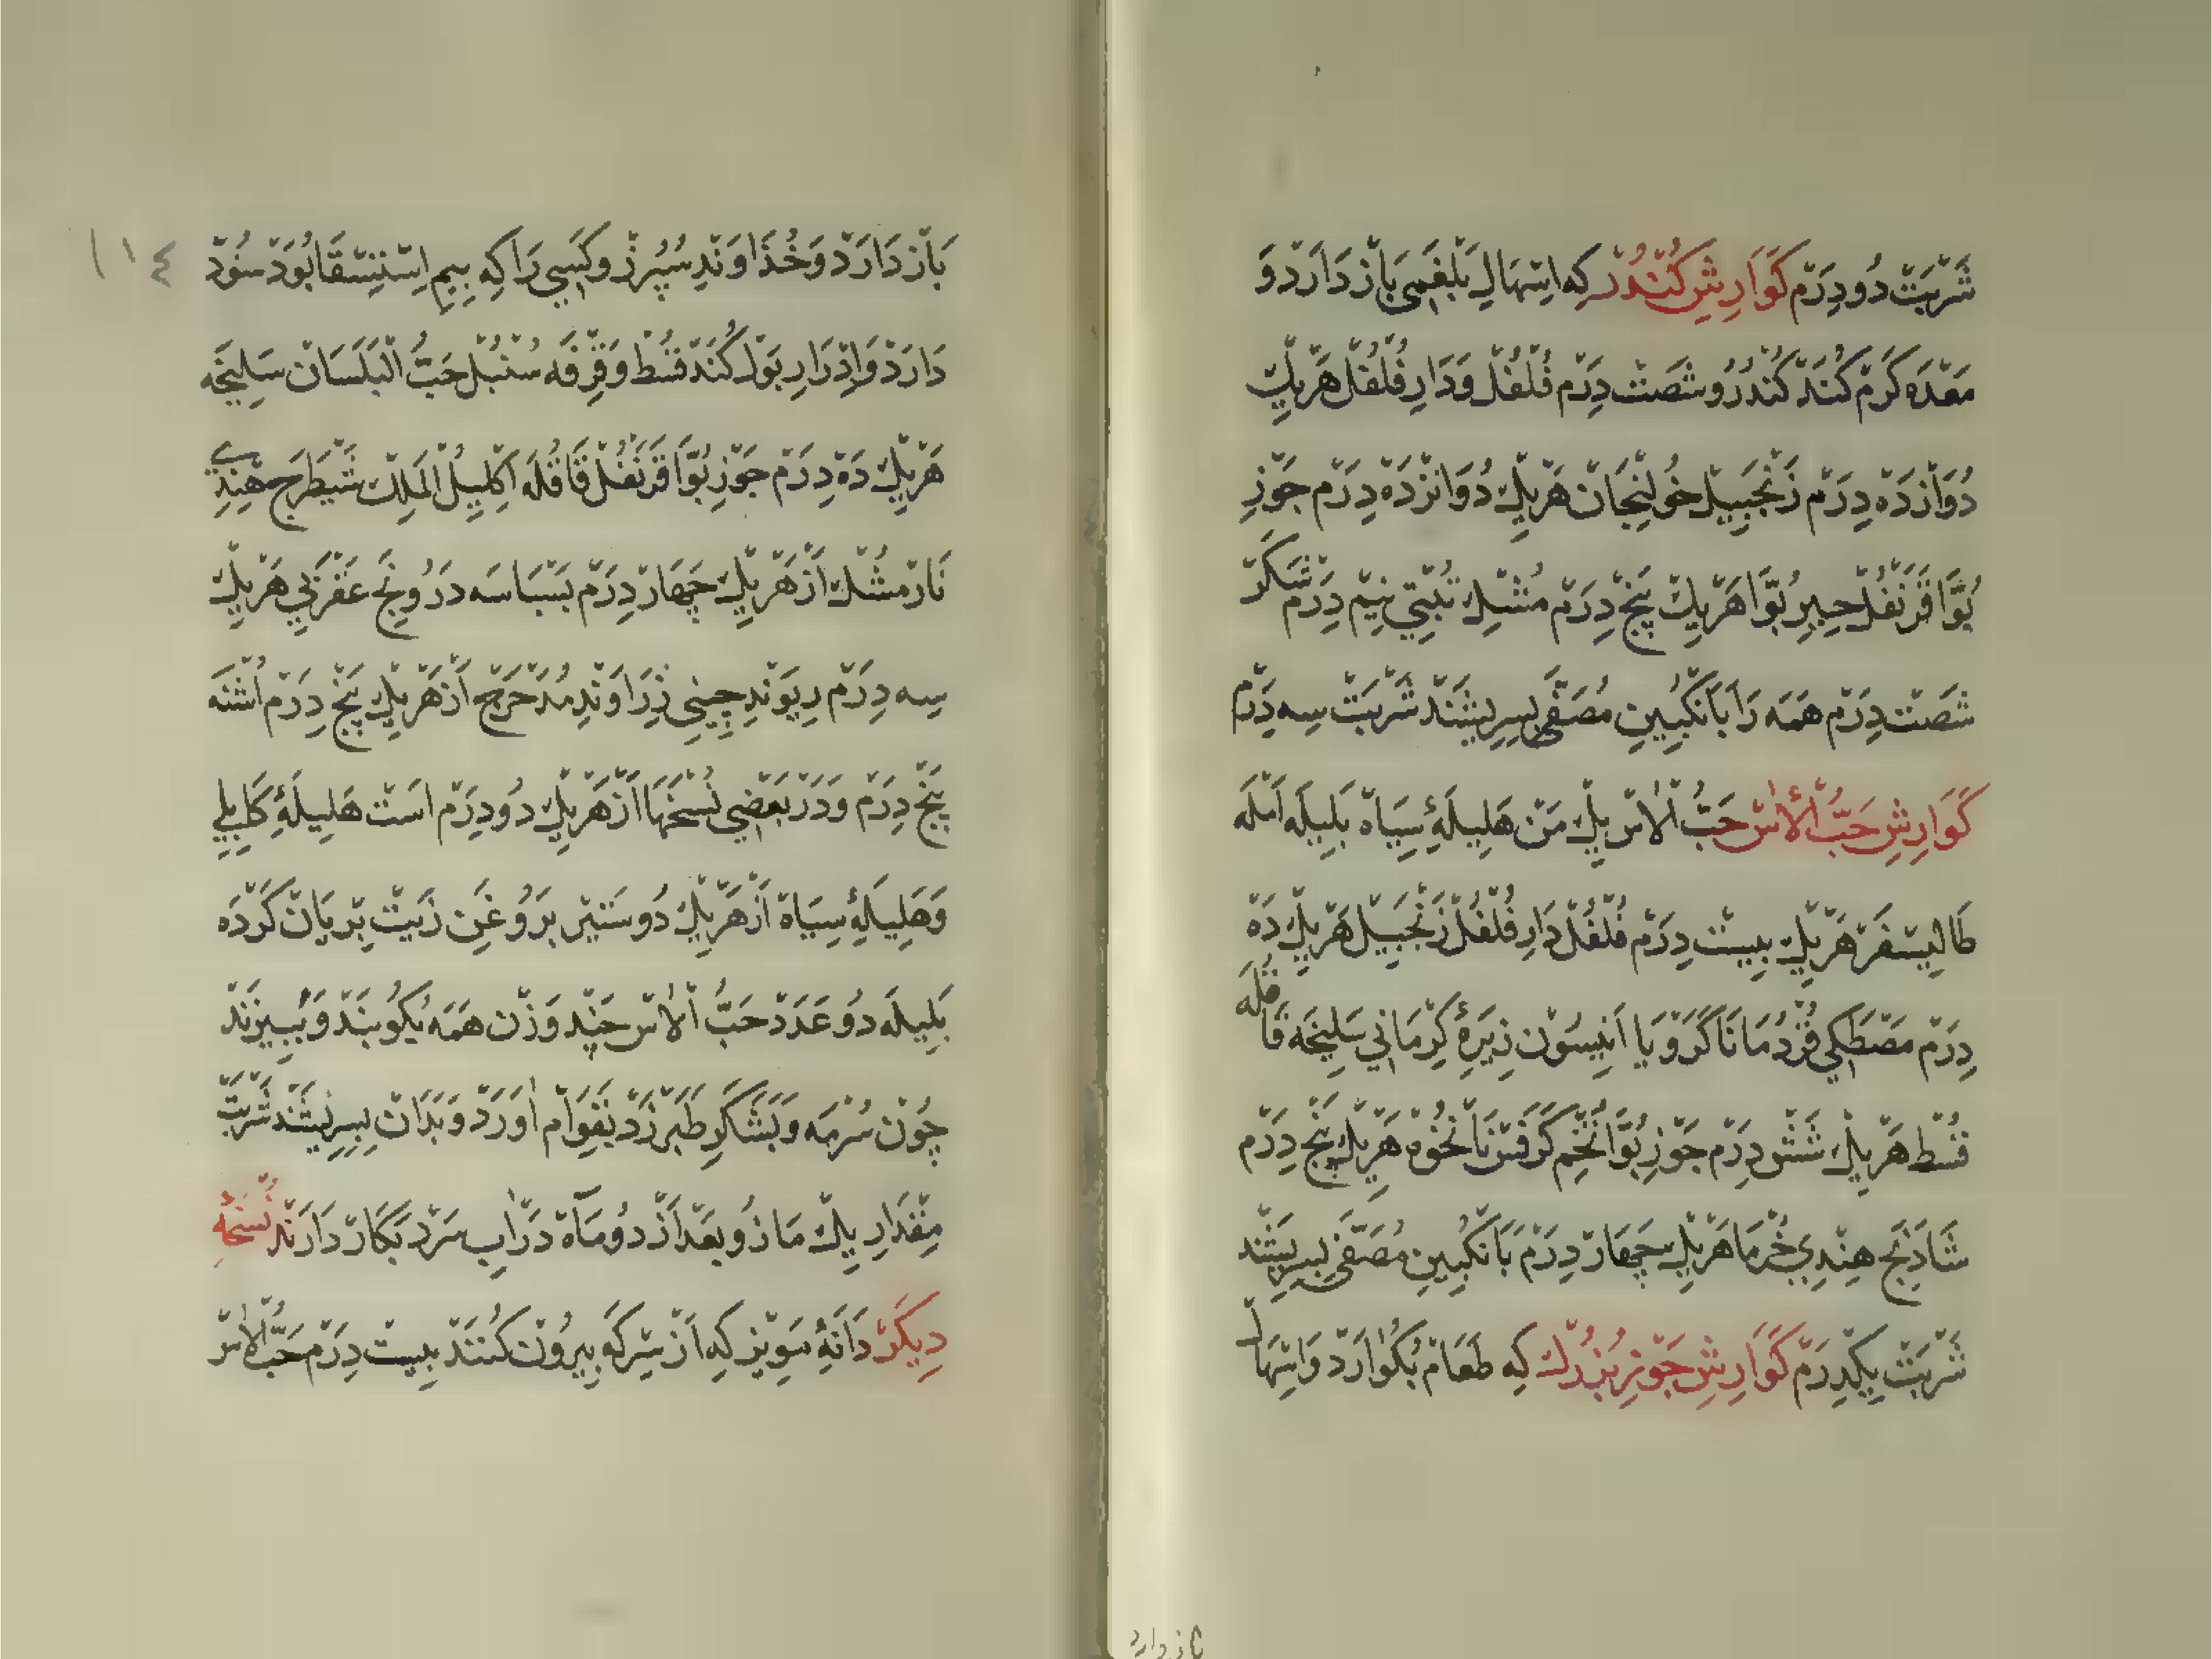 شَرْبَتْ دُو دِرَمْ كَوَارِشِ كُنْدُرْ كِه اِسْهَالِ بَلْغَمِي بَازْ دَارَدْ وَ
مَعْدَه كَرْم كُنَدْ كُنْدُرُو شَصَتْ دِرَمْ فُلْفُلْ وَدَارِ فُلْفُلْ هَرْ يِكْ
دُوَازْدَهْ دِرَمْ زَنْجَبِيلْ خُولِنْجَانْ هَرْ يِكْ دُوَانْزْدَهْ دِرَمْ جَوْزِ
بُوَّا قَرَنْفُلْ خِيرِ بُوَّا هَرْ يِكْ پَنْجْ دِرَمْ مُشْكِ تُبَّتِي نِيمْ دِرَمْ شَكَرْ
شَصَتْ دِرَمْ هَمَه رَا بَانْكُبِينِ مُصَفَّى بِسِرِيشَنْدْ شَرْبَتْ سِه دِرَمْ
كَوَارِشِ حَبُّ الْأٰسْ حَبُّ الْاٰسْ يِكْ مَنْ هَلِيلَهٔ سِيَاهْ بَلِيلَه آمْلَه
طَالِيسْفَرْ هَرْ يِكْ بِيسْتْ دِرَمْ فُلْفُلْ دَارِ فُلْفُلْ زَنْجَبِيلْ هَرْ يِكْ دَهْ
دِرَمْ مَصْطَكِي قُرْدُمَانَا كَرَوْيَا اَنِيسُونْ زِيرَهٔ كِرْمَانِي سَلِيخَه قَاقُلَه
قُسْطْ هَرْ يِكْ شَشْ دِرَمْ جَوْزِ بُوَّا تُخْمِ كَرَفْسْ نَانْخُوَهْ هَرْ يِكْ پَنْجْ دِرَمْ
شَاذَنَجِ هِنْدِي خُرْمَا هَرْ يِكْ چَهَارْ دِرَمْ بَانْكُبِينِ مُصَفَّى بِسِرِيشَنْد
شَرْبَتْ يِكْدِرَمْ كَوَارِشِ جَوْزِ بُزُرْكْ كِه طَعَامْ بُكْوَارَدْ وَاِسْهَالْ
باز دارد
بَازْ دَارَدْ وَخُذَاوَنْدِ سُپُرْزْ وكَسِي رَا كِه بِيمِ اِسْتِسْقَا بُوَدْ سُودْ
دَارَدْ وَاِدْرَارِ بَوْلْ كُنَدْ قُسْطْ وَقِرْفَه سُنْبُلْ حَبُّ الْبَلَسَانْ سَلِيخَه
هَرْ يِكْ دَهْ دِرَمْ جَوْزِ بُوَّا قَرَنْفُلْ قَاقُلَه اِكْلِيلُ الْمَلِكْ شَيْطَرَجِ هِنْدِي
نَارْمُشْكْ اَزْ هَرْ يِكْ چَهَارْ دِرَمْ بَسْبَاسَه دَرُونَجِ عَقْرَبِي هَرْ يِكْ
سِه دِرَمْ رِيوَنْدِ چِينِي زِرَاوَنْدِ مُدَحْرَجْ اَزْ هَرْ يِكْ پَنْجْ دِرَمْ اُشْنَه
پَنْجْ دِرَمْ وَدَرْ بَعْضِي نُسْخَهَا اَزْ هَرْ يِكْ دُو دِرَمْ اَسْتْ هَلِيلَهٔ كَابُلِي
وَهَلِيلَهٔ سِيَاهْ اَزْ هَرْ يِكْ دُو سَتِيرْ بَرَوْغَنِ زَيْتْ بِرْيَانْ كَرْدَه
بَلِيلَه دُو عَدَدْ حَبُّ الْاٰسْ چَنْدِ وَزْنِ هَمَه بُكُوبَنْدْ وَبِبِيزَنْدْ
چُونْ سُرْمَه وَبَشَكَرِ طَبَرْزَدْ بَقَوَامْ اٰوَرَدْ وَبَدَانْ بِسِرِيشَنْد شَرْبَتْ
مِقْدَارِ يِكْ مَازُو بَعْدْ اَزْ دُو مَاهْ دَرْ آبِ سَرْدْ بَكَارْ دَارَنْدْ نُسْخَهٔ
دِيكَرْ دَانَهٔ مَوِيز كِه اَزْ سِرْكَه بِيرُونْ كُنَنْدْ بِيسْتْ دِرَمْ حَبُّ الْاٰسْ
١١٤